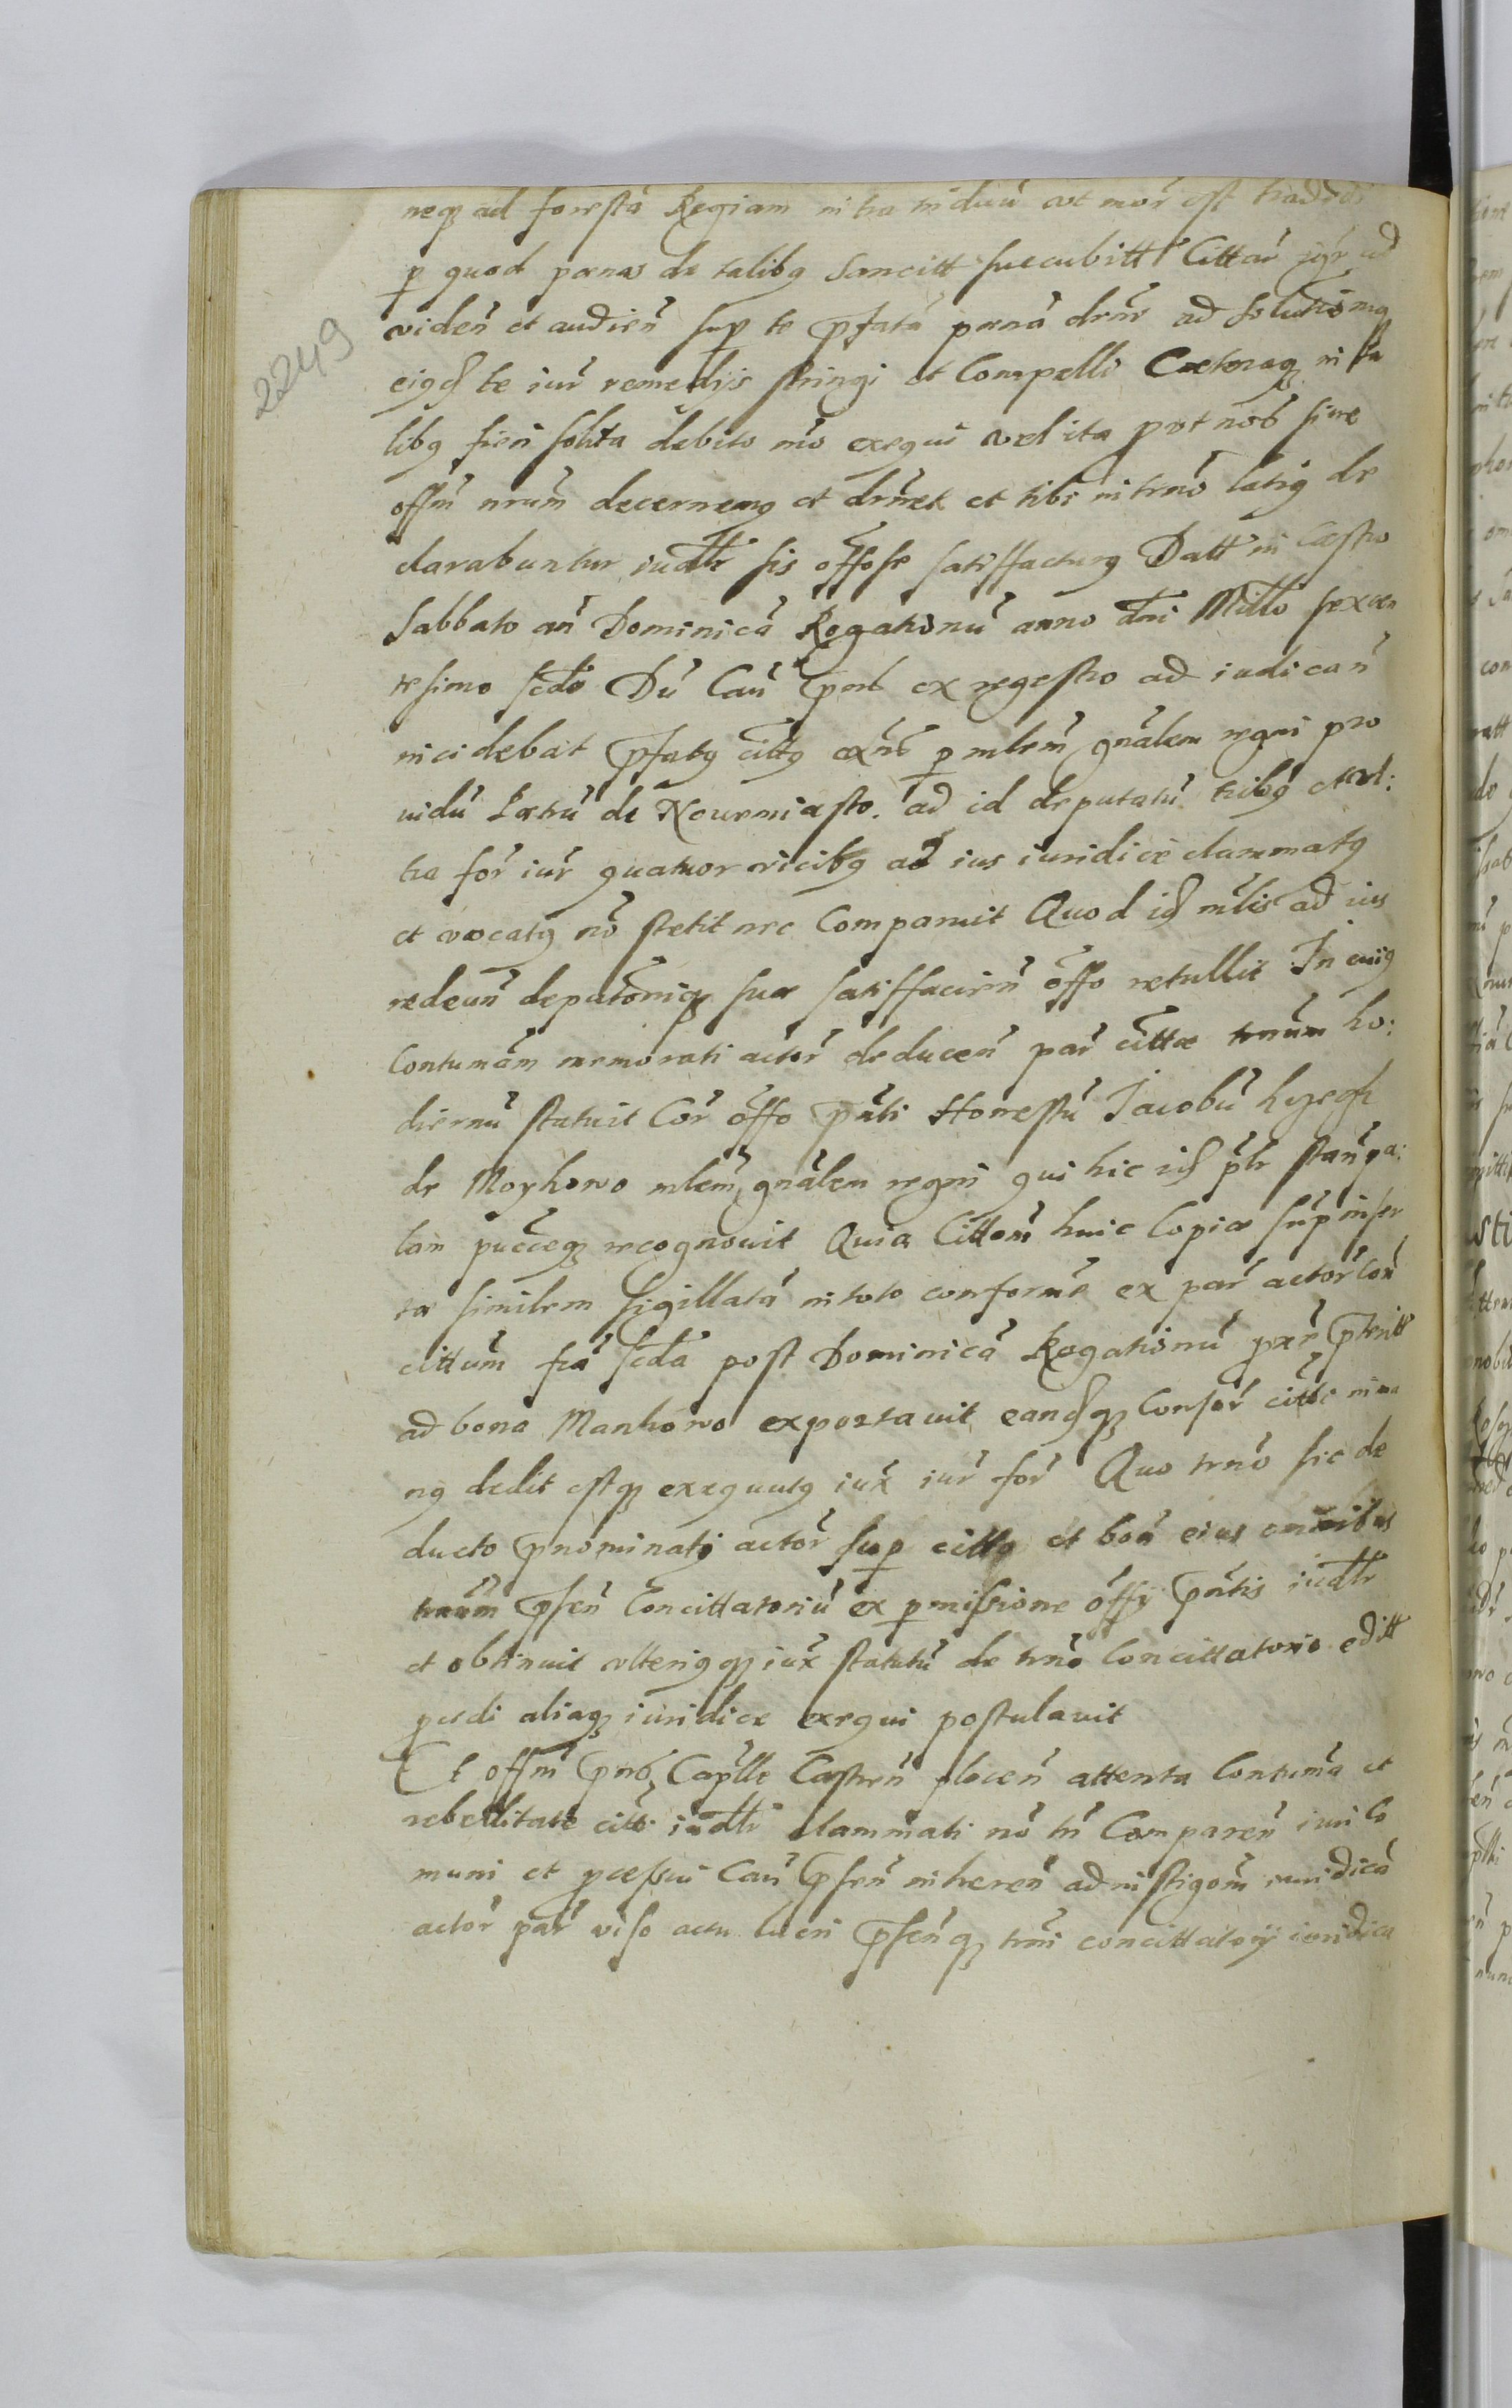 neq₃ ad foresta Regiam intra triduũ vt mor̃ est tradidi
p quod pœnas de talibq Sancitt succubitt Cittar̃ igr̃ ad
viden̄ et audien̄ sup te p̄fatã pœnã dcrñr ad solutionẽq
eiqd te iur̃ remedijs stringi et Compelli Cæteraq₃ in ta
libq fieri solita debito mõ exequi vel ita prot nob siue
offm̃ nr̃um decerneng et dcrñet et tibi in trñõ latiq de
clarabuntur iudtr sis offose satisfacturq Datt in Castro
Sabbato añ Dominicã Rogationũ anno dñi Millõ sexcen
tesimo scdõ Dũ Cañ pñs ex regestro ad iudicañ
incidebat p̄fatq cittq exñs p mlrm̃ gnãlem regni pro
uidũ Petrũ de Nouemiasto ad id deputatũ tribq et vl:
tra for̃ iur̃ quatuor vicibq ad ius iuridice clammatq
et vocatq nõ stetit nec Comparuit Quod id mlis ad ius
redeuñ deputõniq₃ suæ satisfacien̄ offo retullit In cuiq
Contumãm memorati actor̃ deducen̄ par̃ cittæ trñum ho:
diernũ statuit Cor̃ offo pñti Honestũ Jacobũ
de Moykowo mlem̃ gnãlem regni qui hic id plr stañ pa:
lam puceq₃ recognouit Quia Cittõm huic Copiæ sup inser
tæ similem sigillatã in toto conformẽ ex par̃ actor̃ Con
cittum fiã scdã post Dominicã Rogationũ pxẽ p̄teritt
ad bona Mankowo exportauit eandq₃ Consor̃ citti in ma
nq dedit estq₃ exequutq iux̃ iur̃ for̃ Quo trñõ sic de
ducto p̄nominatq actor̃ sup cittq et boñ eius omnibus
trñum p̄sen̄ Concittatoriũ ex pmissione offÿ pñtis iudtr
et obtinuit vlteriqq₃ iux̃ statutũ de trñõ Concittatorio editt
pcedi aliaq₃ iuridice exequi postulauit
Et offm̃ pñs Caplle Castren̄ plocen̄ attenta Contumã et
rebellitate citti iudtr clammati nõ tñ Comparen̄ iuri Co
muni et pcessui Cañ p̄sen̄ inheren̄ ad instigõm̃ iuridicã
actor̃ par̃ viso actu lucri p̄senq₃ trñi concittatorÿ iuridica
2249